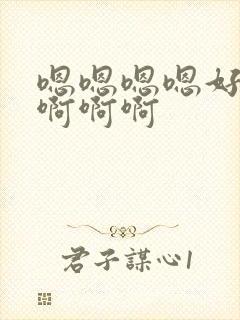 嗯嗯嗯嗯好
啊啊啊
君子謀心1